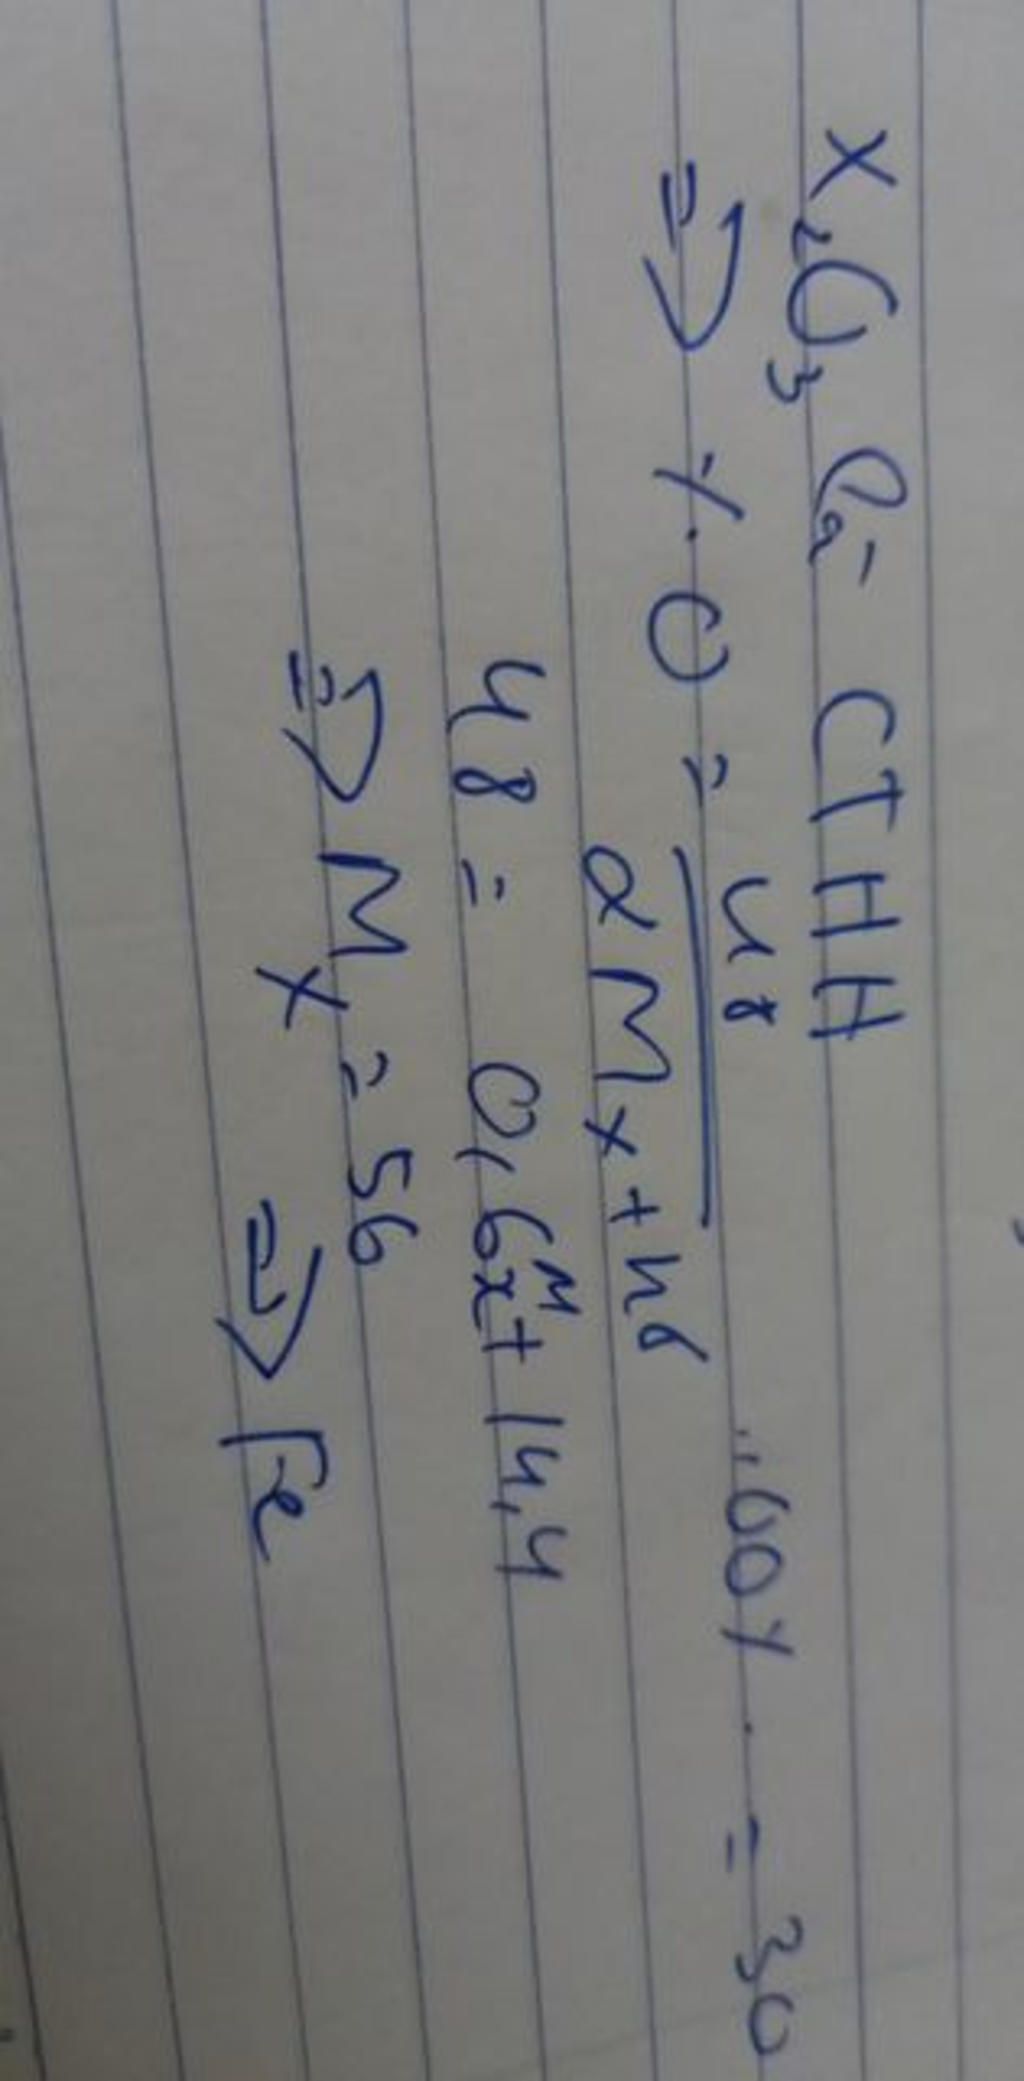 X₂O₃ là CTHH
=> % O = 48 / 2Mx + 48 . 100% = 30
48 = 0,6Mx + 14,4
=> Mx = 56 => Fe